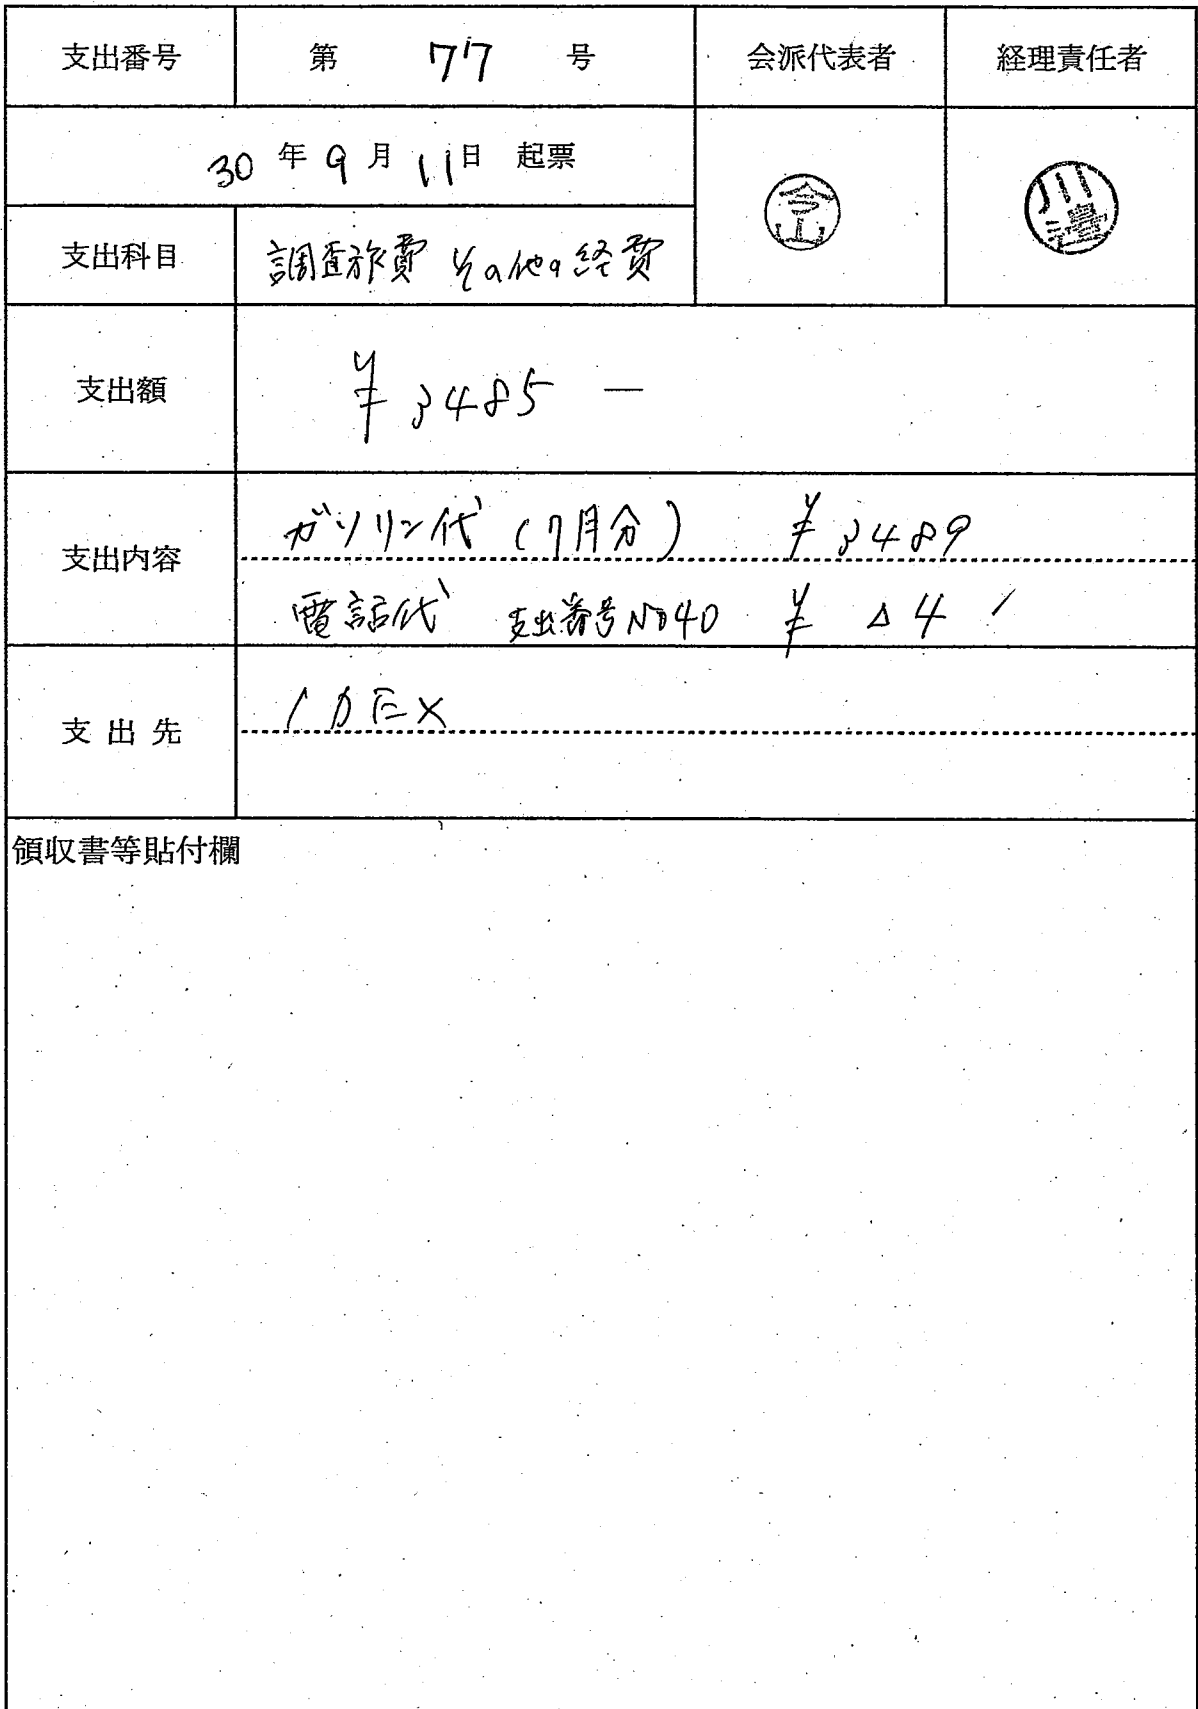 支出番号 第 77 号 会派代表者 経理責任者
30 年 9 月 11 日 起票
今山
川邉
支出科目 調査旅費 その他の経費
支出額 ¥3485 ―
支出内容 ガソリン代 (7月分) ¥3489
電話代 支出番号No40 ¥ △4
支出先
領収書等貼付欄